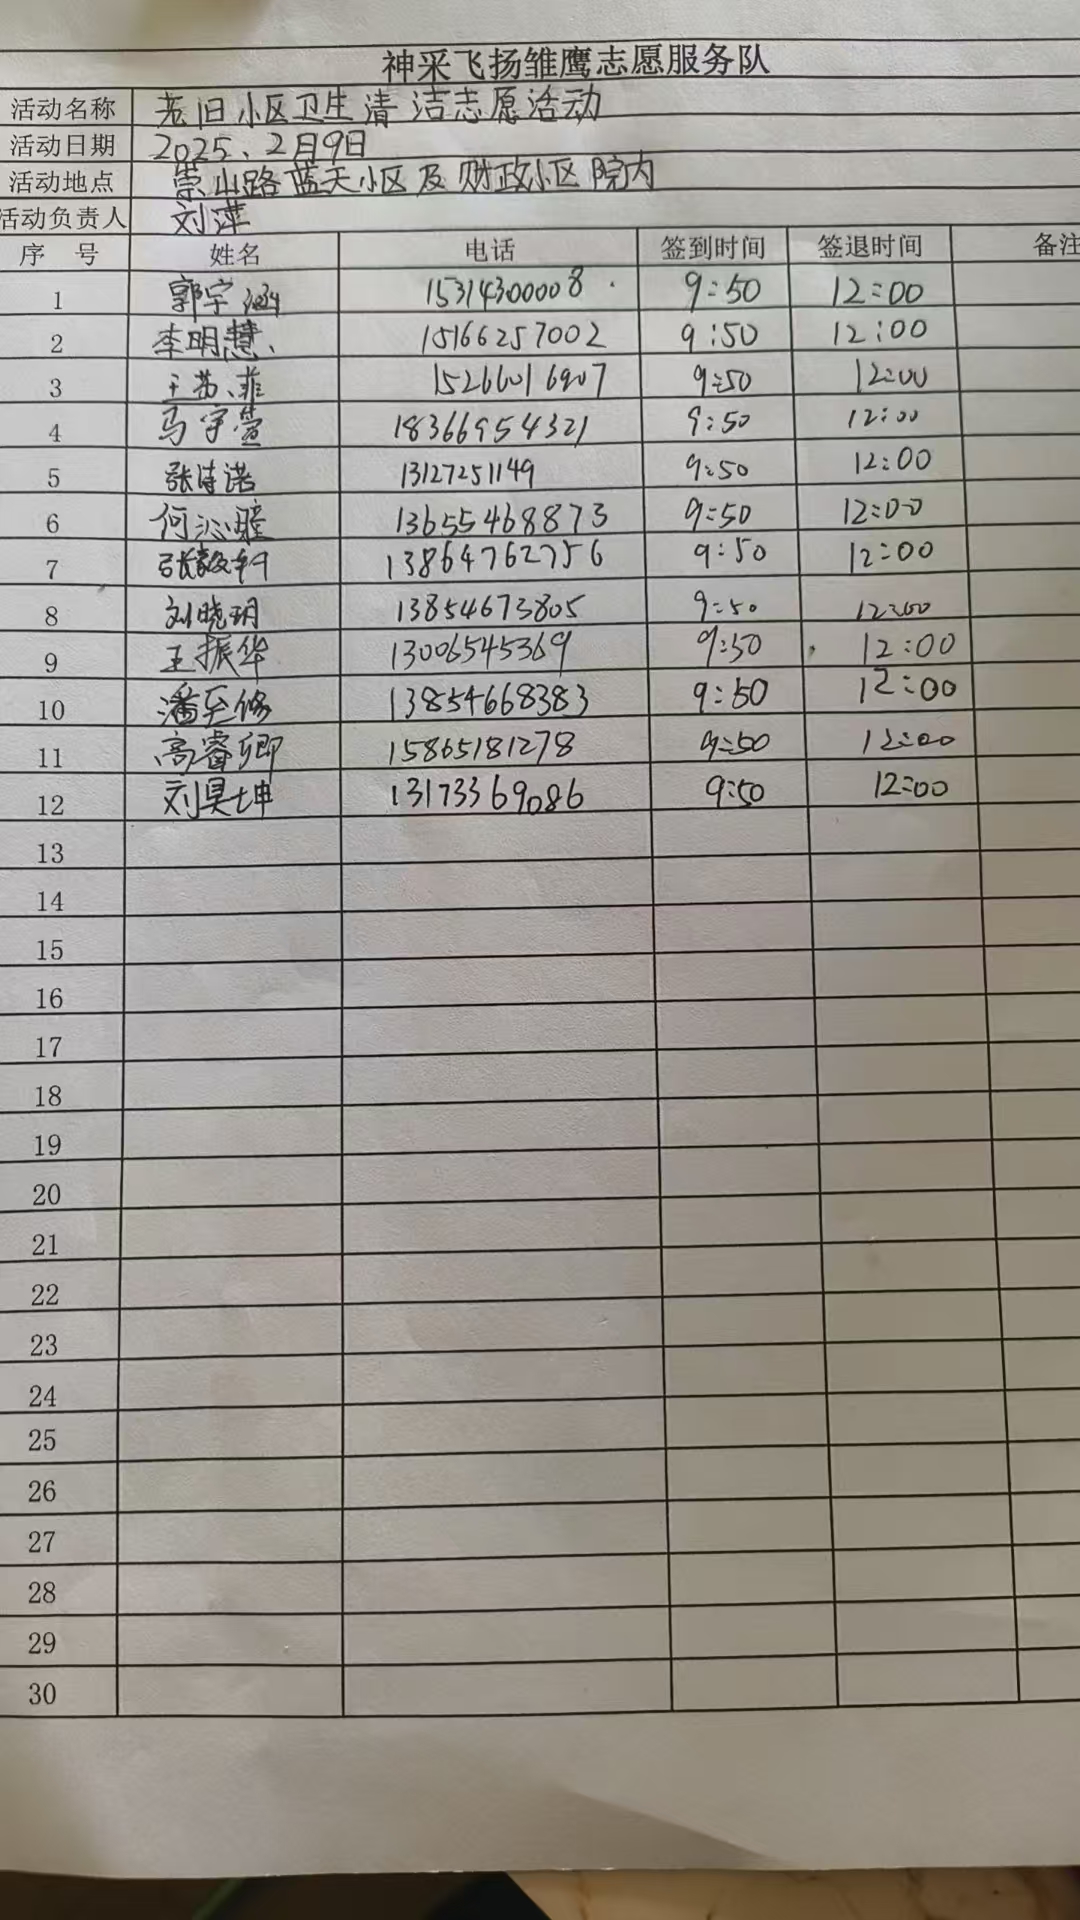 神采飞扬雏鹰志愿服务队
活动名称 老旧小区卫生清洁志愿活动
活动日期 2025、2月9日
活动地点 崇山路蓝天小区及财政小区院内
活动负责人 刘萍
序 号 姓名 电话 签到时间 签退时间 备注
1 郭宇涵 15314300008 9:50 12:00
2 李明慧、 15166257002 9:50 12:00
3 王艺菲 15266016907 9:50 12:00
4 马宇萱 18366954321 9:50 12:00
5 张诗诺 13127251149 9:50 12:00
6 何沁瞳 13655468873 9:50 12:00
7 张毅轩 13864762756 9:50 12:00
8 刘晓玥 13854673805 9:50 12:00
9 王振华 13006545369 9:50 12:00
10 潘至修 13854668383 9:50 12:00
11 高睿卿 15865181278 9:50 12:00
12 刘昊坤 13173369086 9:50 12:00
13
14
15
16
17
18
19
20
21
22
23
24
25
26
27
28
29
30